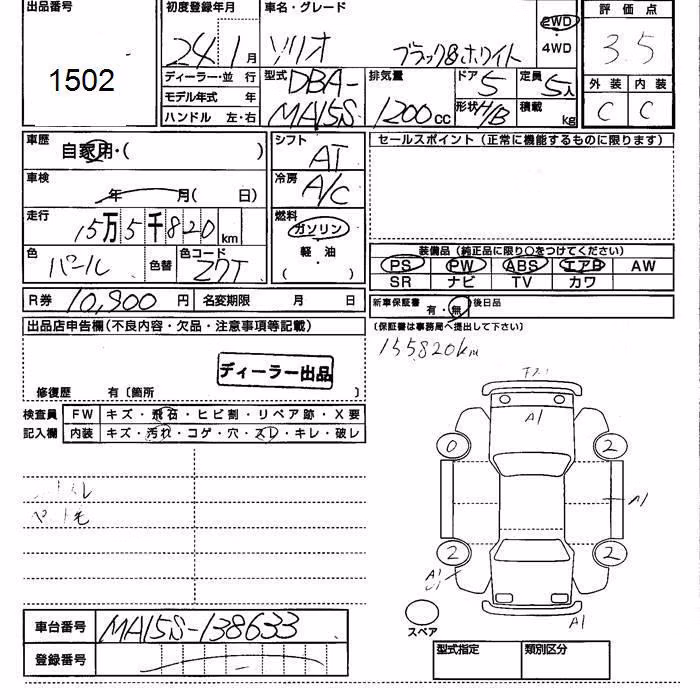 出品番号 初度登録年月 車名・グレード 評価点
1502 24 1月 ソリオ ブラック&ホワイト 2WD ・4WD 3.5
ディーラー・並 行 型式 DBA-MA15S 排気量 1200cc ドア 5 定員 5人 外装 内装
モデル年式 年 形状 H/B 積載 kg C C
ハンドル 左・右
車歴 自家用・( ) シフト AT セールスポイント(正常に機能するものに限ります)
車検 年 月( 日) 冷房 A/C
走行 15万5千820km 燃料 ガソリン 軽・油 ( )
色 パール 色替 色コード Z7T 装備品(純正品に限り○をつけてください)
PS PW ABS エアB AW
SR ナビ TV カワ
R券 10,900円 名変期限 月 日 新車保証書 有・無 後日品
出品店申告欄(不良内容・欠品・注意事項等記載) (保証書は事務局へ提出して下さい)
155820km
ディーラー出品
修復歴 有〔箇所 〕
検査員 FW キズ・飛石・ヒビ割・リペア跡・X要
記入欄 内装 キズ・汚れ・コゲ・穴・スレ・キレ・破レ
A1
0 2
A1
2 2
A1
A1
スペア
車台番号 MA15S-138633
登録番号
型式指定 類別区分